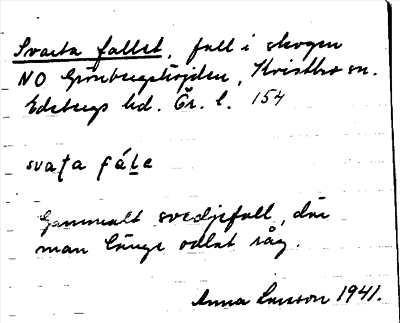 Svarta fallet, fall i skogen
NO Grönbergshöjden, Kvistbro sn.
Edsbergs hd. Ör. l. 154
svaṭa fáḷe
Gammalt svedjefall, där
man länge odlat råg.
Anna Larsson 1941.